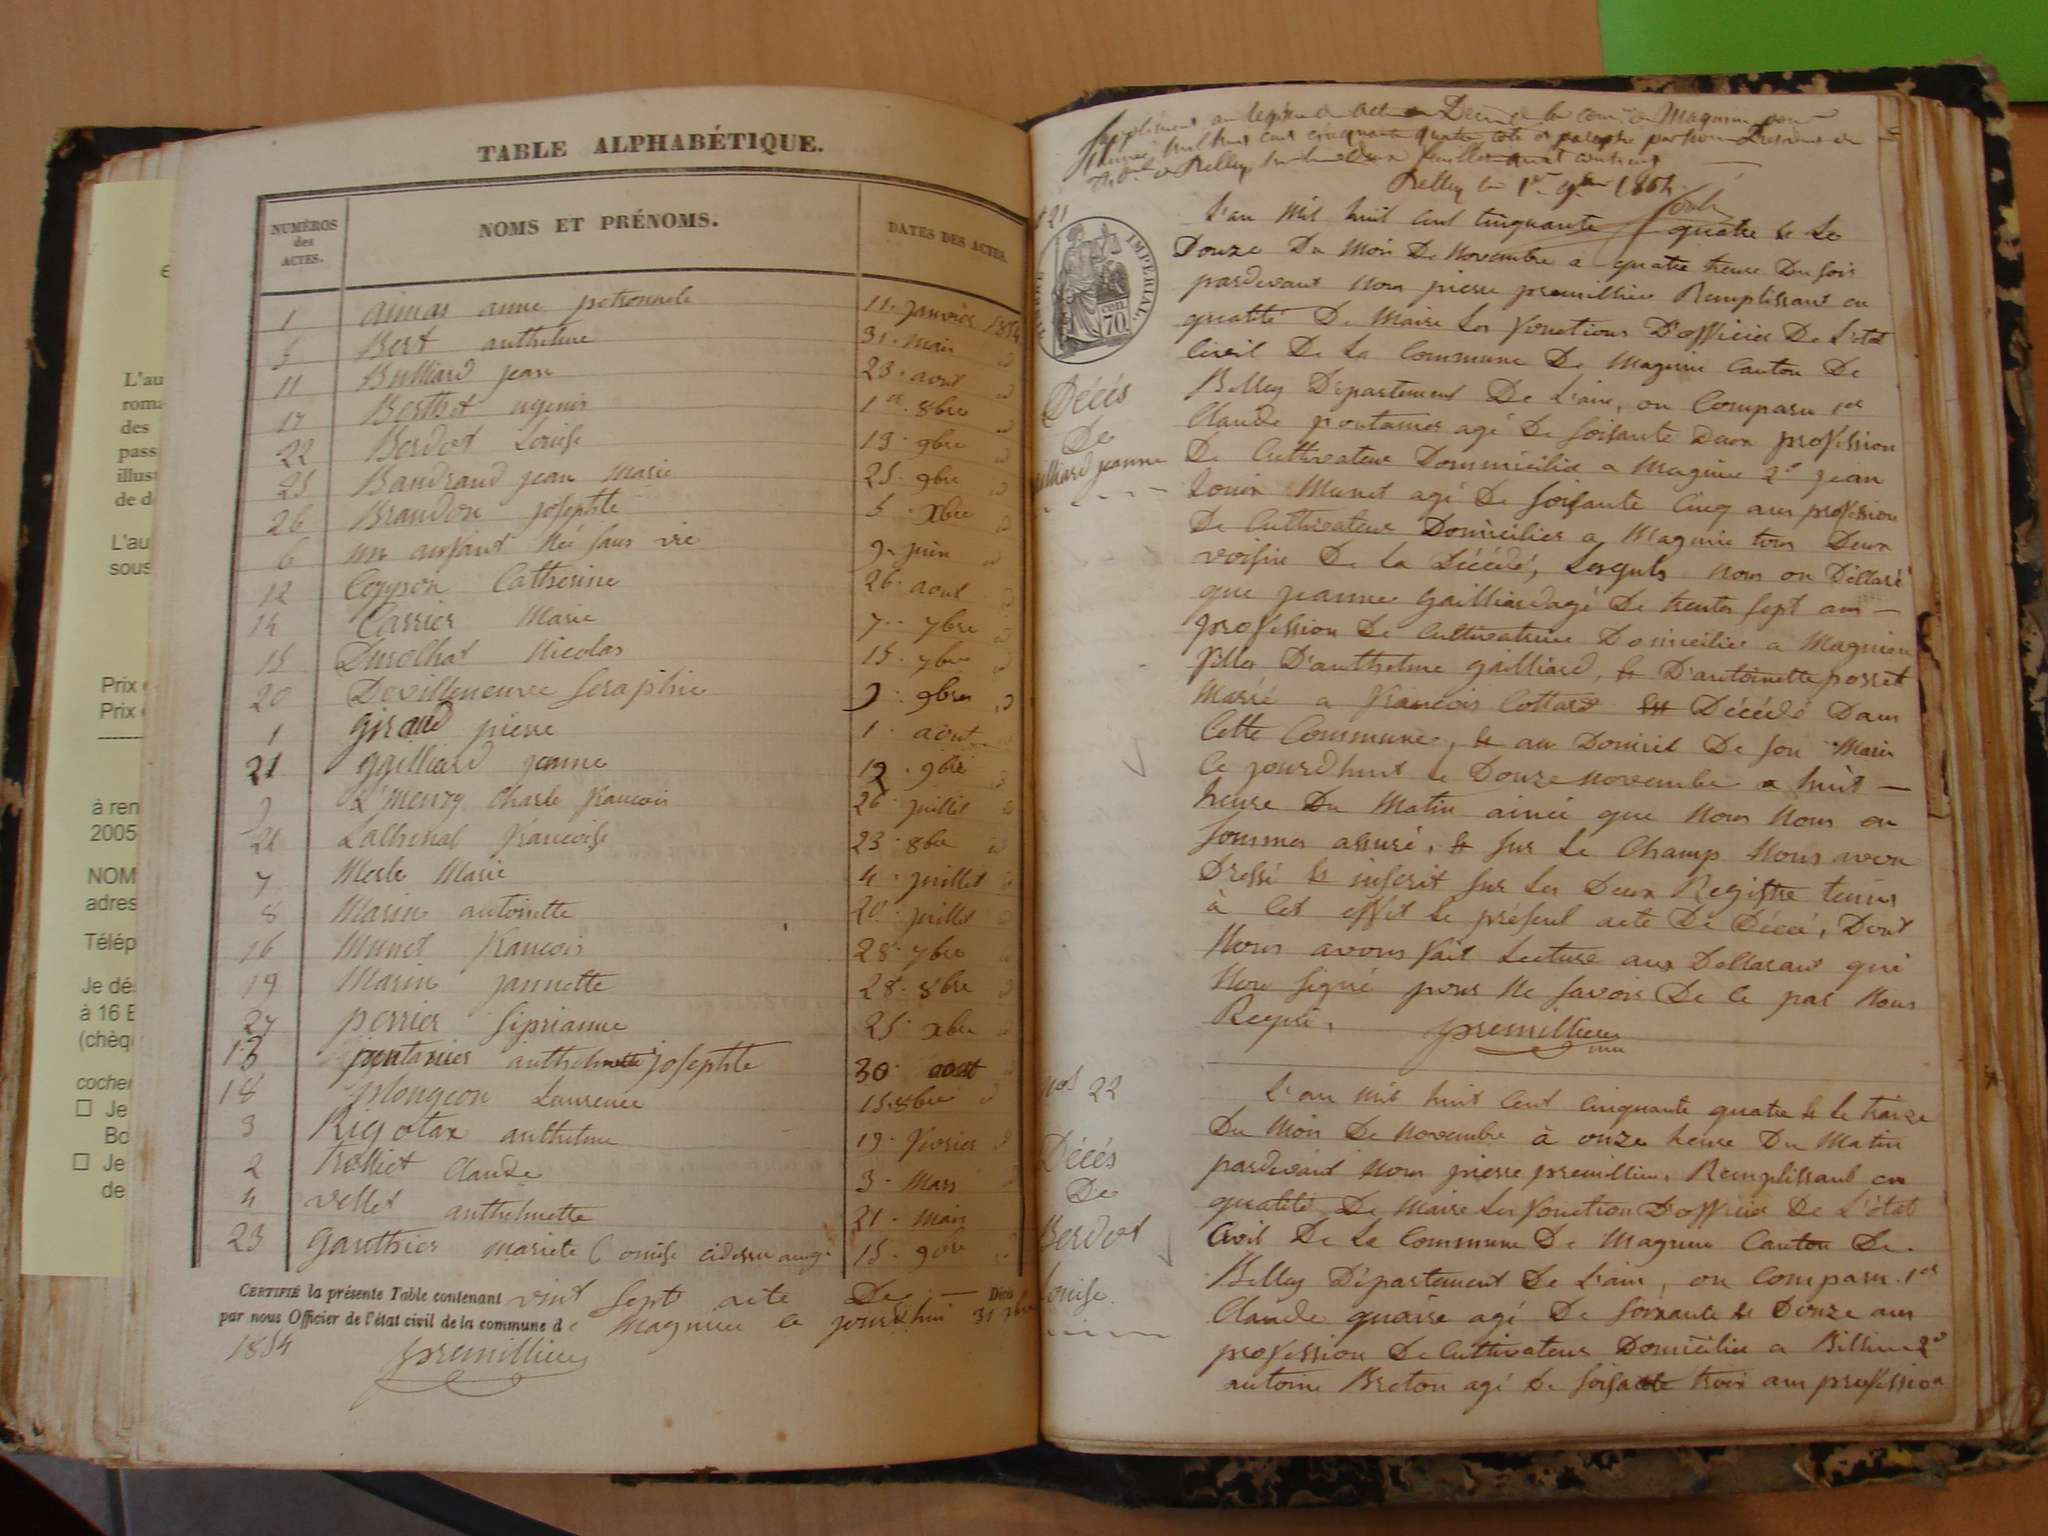 TABLE ALPHABÉTIQUE.
NUMÉROS des ACTES. NOMS ET PRÉNOMS. DATES DES ACTES.
1 aimas anne petronnele 11. Janvier 1854
5 Bert anthelme 31. Mai id
11 Bulliard jean 23. aout id
17 Berthet 1er. 8bre id
22 Berdet Louise 13. 9bre id
25 Bandrand jean Marie 25. 9bre id
26 Brandon josephte 5. Xbre id
6 un anfant Né sans vie 9. juin id
12 Coyson Catherine 26. aout id
14 Carrier Marie 7. 7bre id
15 Nicolas 15. 7bre id
20 Devilleneuve Seraphie 9bre id
1 giraud pierre 1. aout
21 ggilliard jeanne 12. 9bre id
9 Charle francois 26. juillet id
Lathenal francoise 23. 8bre id
7 Merle Marie 4. juillet id
8 Marin antoinette 20. juillet id
16 Munet francois 28. 7bre id
19 Marin jannette 28. 8bre id
27 perrier siprianne 25. xbre id
13 pontanier josephte 30. aout id
18 plongeon Laurence 15. 8bre id
3 Rigotax anthelme 19. fevrier id
2 Trolliet Claude 3. Mars id
4 vellet anthelmette 21. Mars
23 gauthier mariete Louise 15. 9bre id
CERTIFIÉ la présente Table contenant vint sept acte De Décès
par nous Officier de l'état civil de la commune de Magnieu le jourdhui 31 xbre
1854 premillieu
Belley le 1er 9bre 1854.
21
TIMBRE IMPÉRIAL
70 cen
Décés
De
gailliard jeanne
L'an mil huit cent cinquante quatre & Le
Douze Du Mois De Novembre a quatre heure Du soir
pardevant nous pierre premillieu Remplissant en
qualité De Maire Les fonctions D'officier De L'etat
Civil De La Commune De Magnieu Canton De
Belley Departement De L'ain, on Comparu 1er
Claude pontanier agé De soisante Deux profession
De Cultivateur Dommicilié a Magnieu 2e jean
Louis Munet agé De soisante Cinq ans profession
De Cultivateur Domicilier a Magnieu tous Deux
voisin De La Décédé, Lesquels nous on Déllaré
que jeanne gailliard agé De trente sept ans —
profession De Cultivatrice Domicilier a Magnieu
fille D'anthelme gailliard, & D'antoinette porret
Marié a francois Cottard est Décédé Dans
Cette Commune, & au Domicil De son Marie
Ce jourdhuit le Douze novembre a huit —
heure Du Matin ainci que Nous Nous en
sommes assuré, & sur Le Champ Nous avon
Dressé & inscrit sur Les Deux Registre tenus
à Cet effet Le présent acte De Décé, Dont
Nous avons fait Lecture aux Dellarans qui
Non signé pour Ne savoir De Ce par Nous
Requi. premillieu
nos 22
Décés
De
Berdet
Louise.
L'an mil huit Cent Cinquante quatre & Le traize
Du Mois De Novembre à onze heure Du Matin
pardevant Nous pierre premillieu, Remplissant en
qualité De Maire Les fonction D'officier De L'état
Civil De La Commune De Magnieu Canton De.
Belley Département De L'ain, on Comparu. 1er
Claude agé De soixante & Douze ans
profession De Cultivateur Domicilier a Billieu 2e
antoine Breton agé De soisante trois ans profession
L'au
roma
des
pass
illus
de d
L'au
sous
Prix
Prix
à ren
2005
NOM
adres
Télép
Je dé
à 16 E
(chèq
cocher
☐ Je
Bo
☐ Je
de